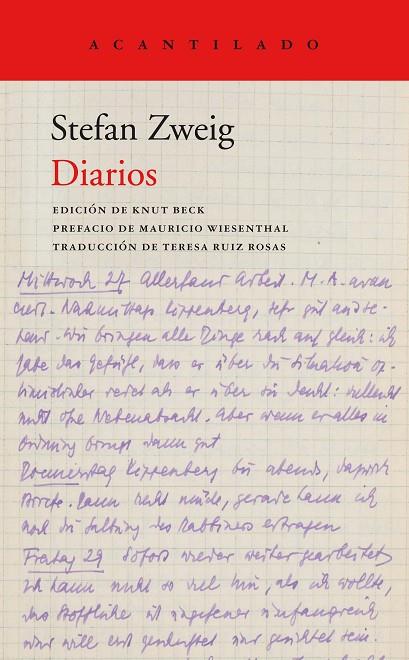 ACANTILADO
Stefan Zweig
Diarios
EDICIÓN DE KNUT BECK
PREFACIO DE MAURICIO WIESENTHAL
TRADUCCIÓN DE TERESA RUIZ ROSAS
Mittwoch 27 Allerhand Arbeit. M. A. avan
ciert. Nachmittags Kippenberg, sehr gut
Wir bringen alle Dinge rasch auf gleich: ich
habe das Gefühl, dass er über die Situation op-
timistischer redet als er über sie denkt: vielleicht
nicht ohne Nebenabsicht. Aber wenn er alles in
Ordnung bringt dann gut
Donnerstag Kippenberg bis abends, dazwischen
Briefe. Dann recht müde, gerade kann ich
noch die des Rabbiners ertragen
Freitag 29 Sofort wieder weitergearbeitet
Ich kann nicht so viel tun, als ich wollte,
das Stoffliche ist ungeheuer umfangreich
und will erst und gesichtet sein.